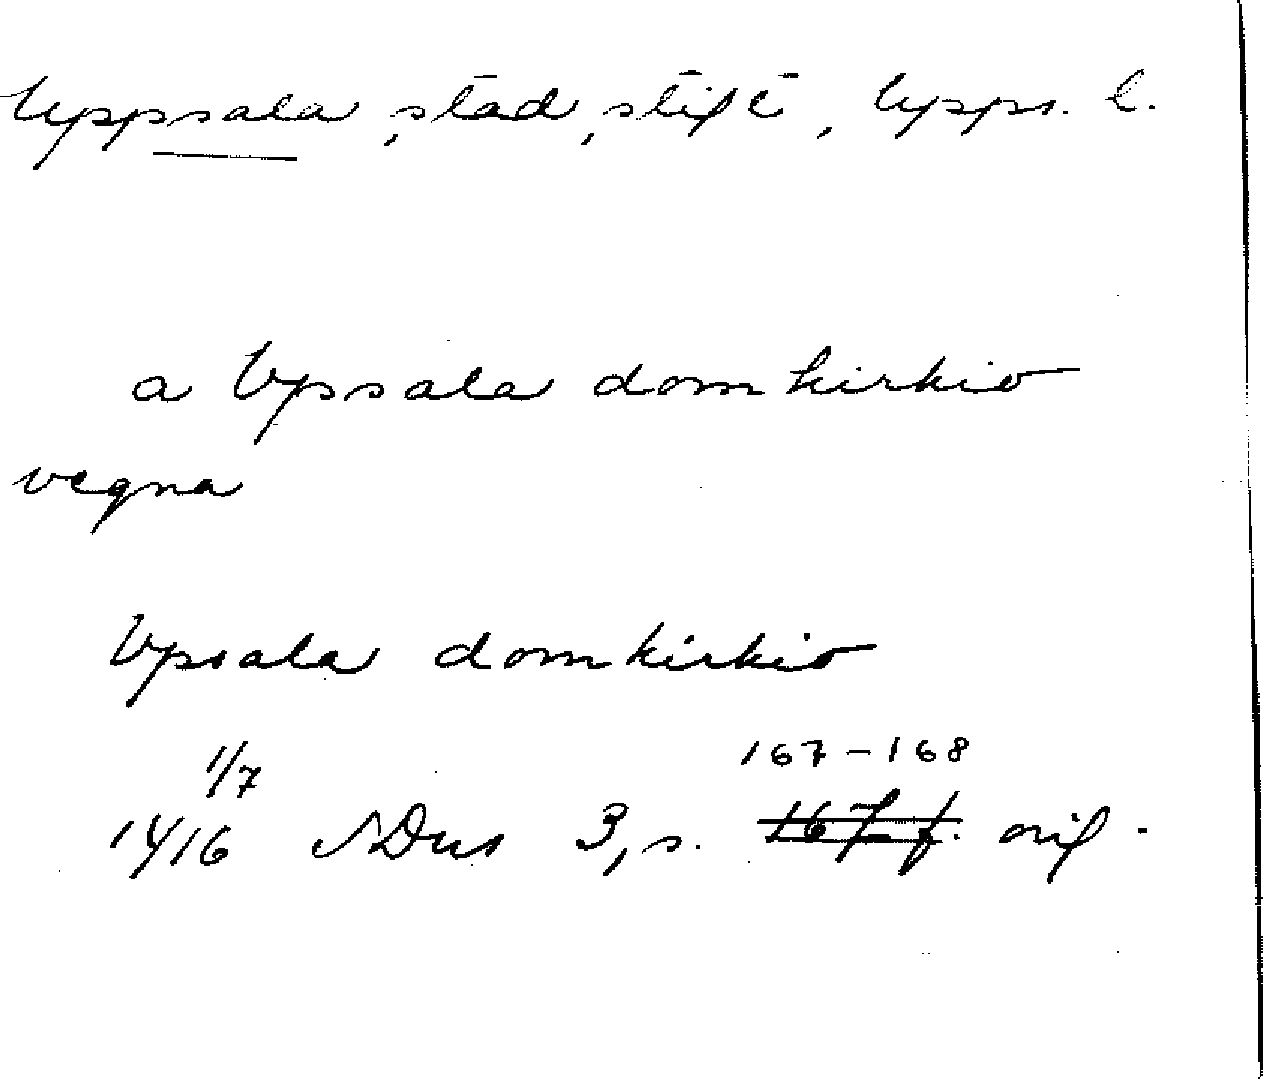 Uppsala, stad, stift, Upps. l.
a Vpsala domkirkio
vegna
Vpsala domkirkio
1/7 167-168
1416 SDns 3, s. 167 f. orig.